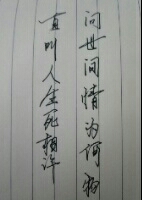 问世间情为何物
直叫人生死相许